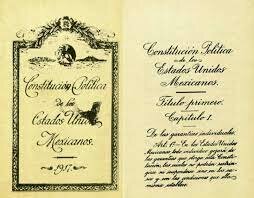 Constitución Política
de los
Estados Unidos
Mexicanos.
1917.
Constitución Política
de los
Estados Unidos
Mexicanos.
Título primero.
Capítulo I.
De las garantías individuales.
Art. 1º- En los Estados Unidos
Mexicanos todo individuo gozará de
las garantías que otorga esta Consti-
tución, las cuales no podrán restrin-
girse ni suspenderse sino en los ca-
sos y con las condiciones que ella mis-
ma establece.